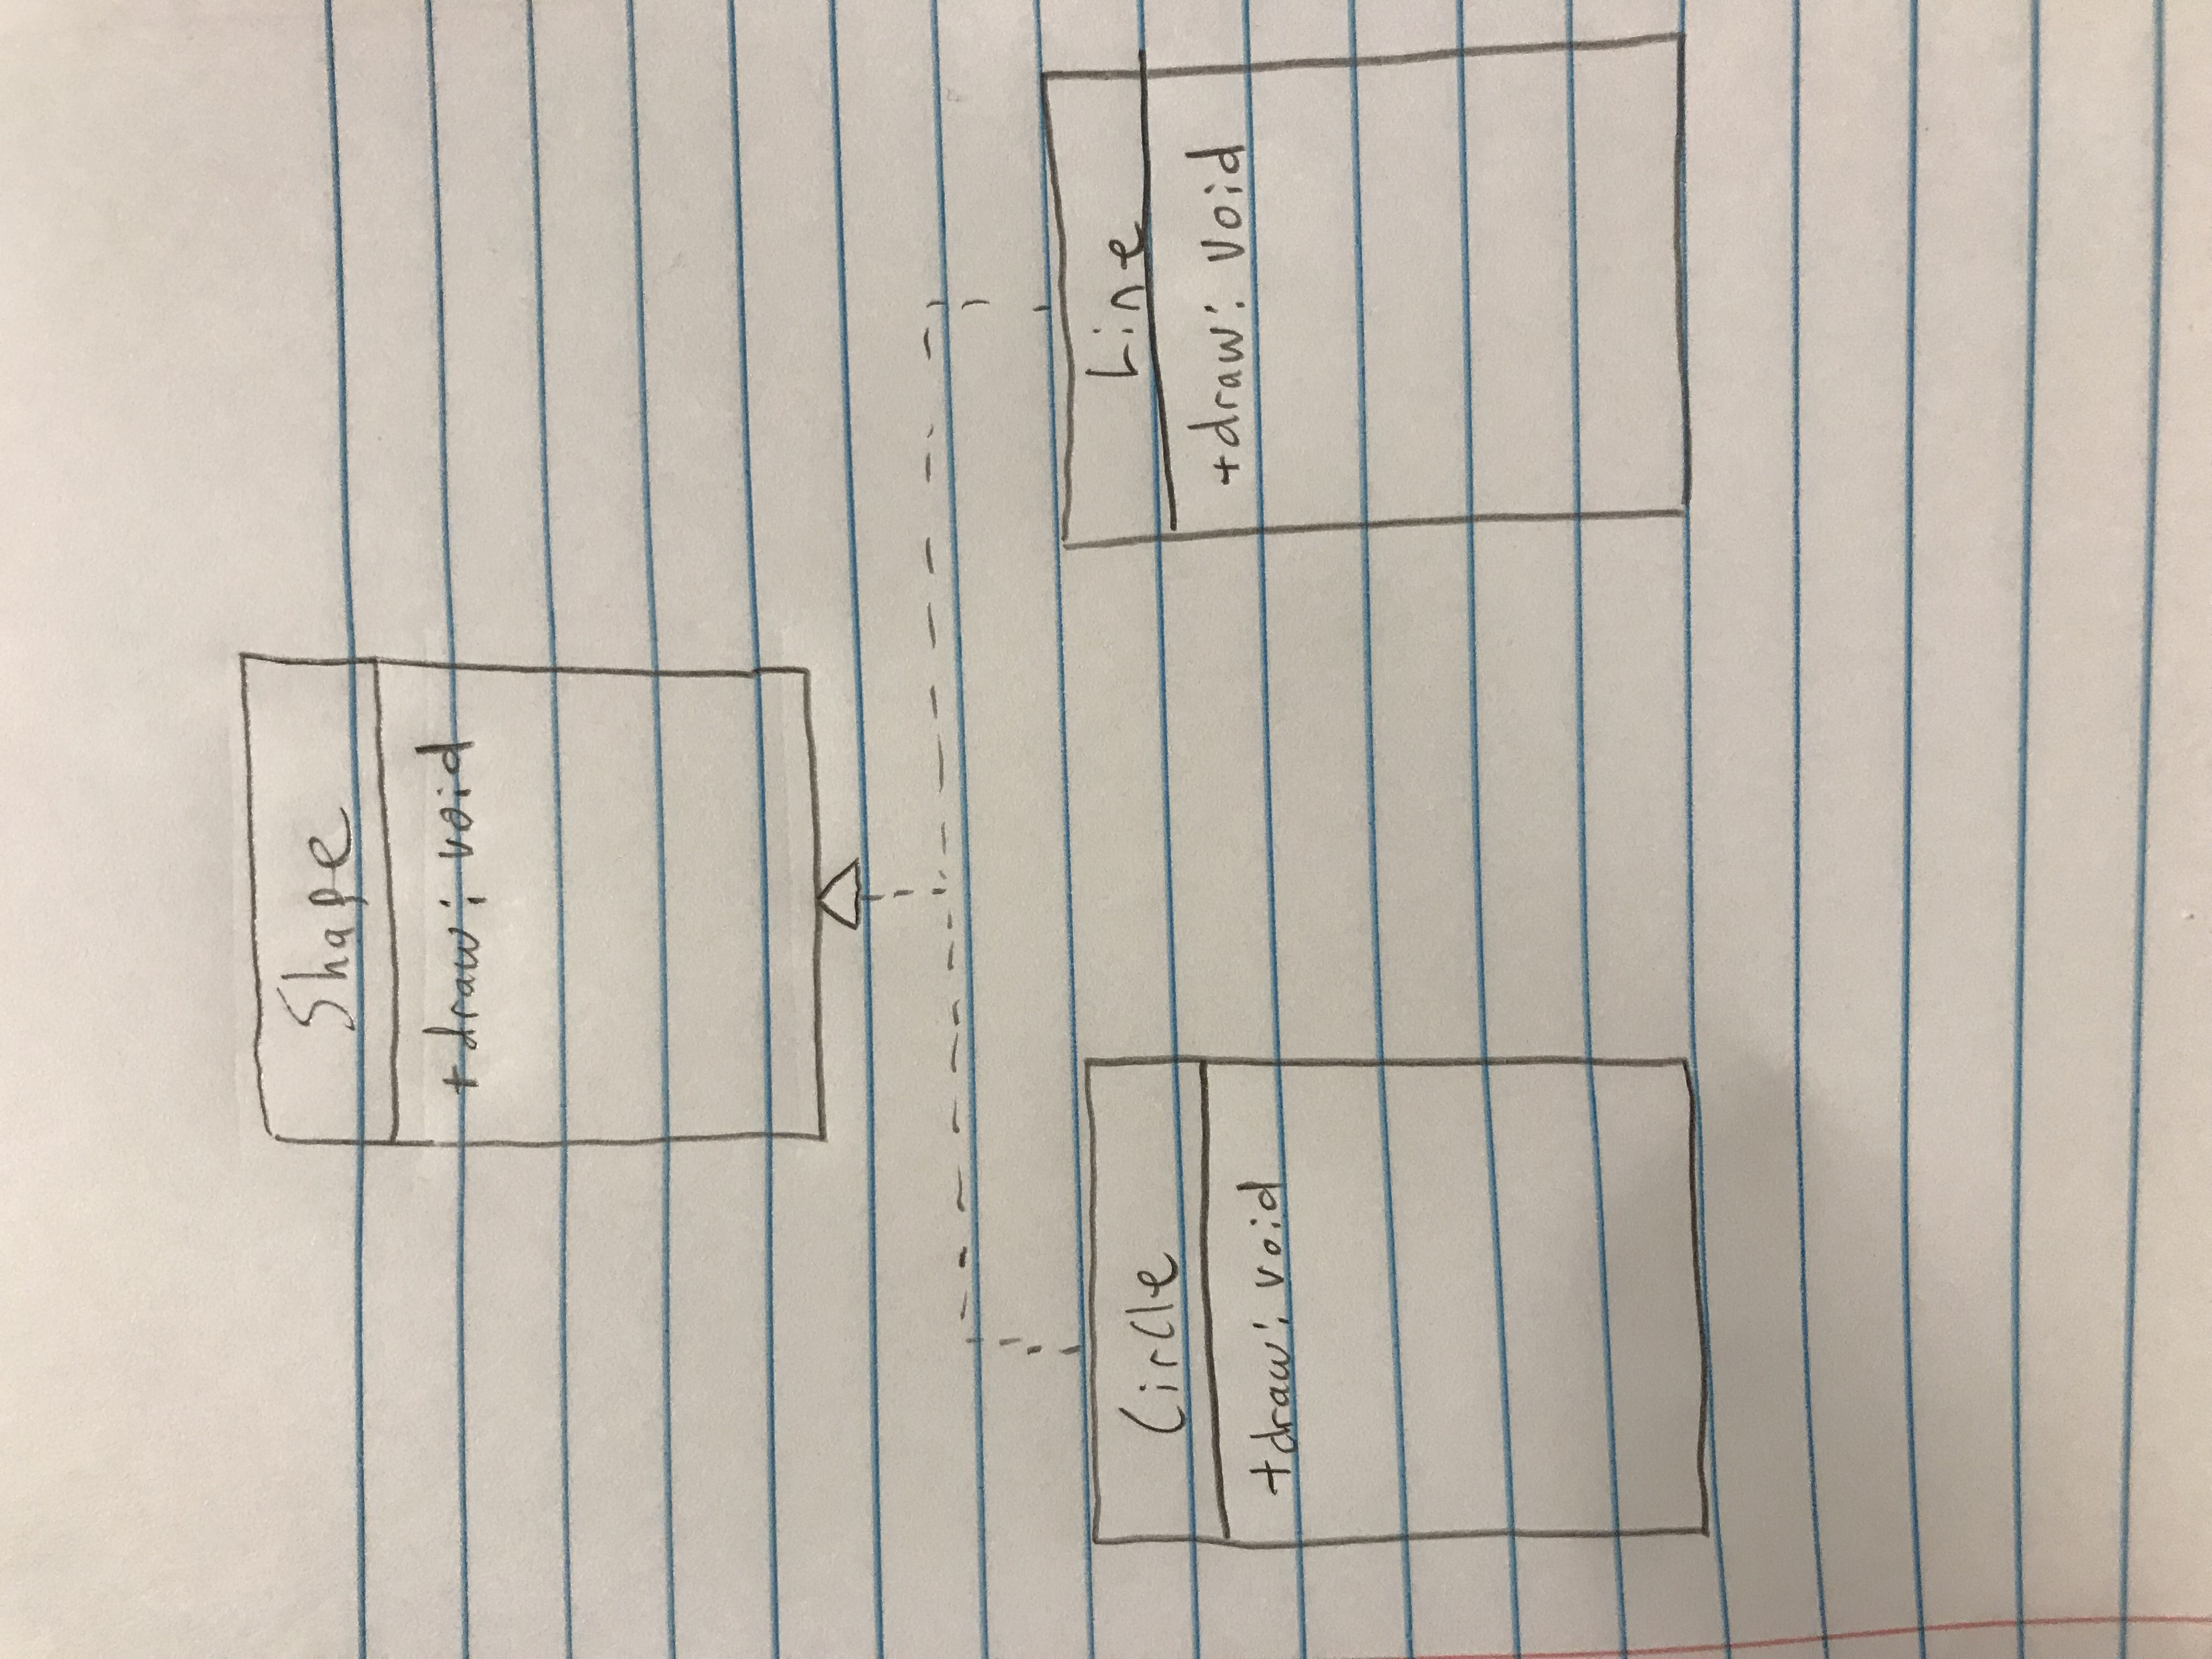 Shape
+draw: void
Circle
+draw: void
Line
+draw: void